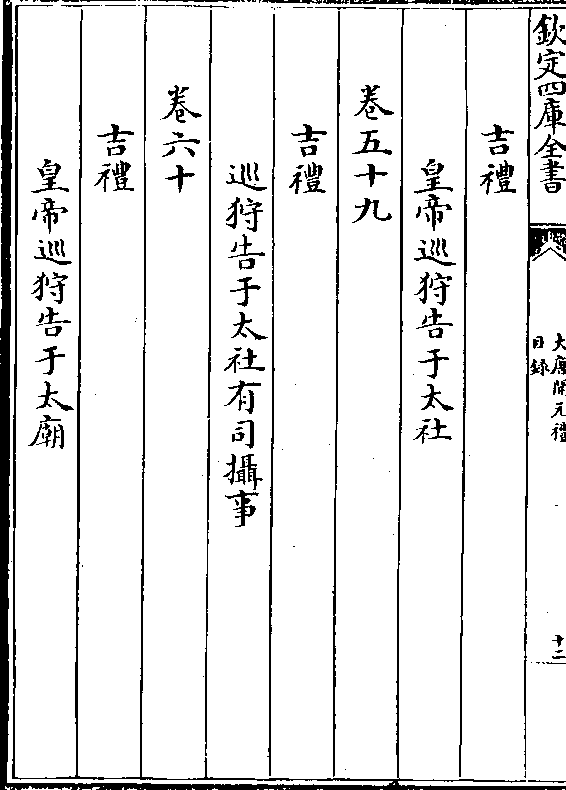 欽定四庫全書
大唐開元禮
目録
十二
吉禮
皇帝巡狩告于太社
卷五十九
吉禮
巡狩告于太社有司攝事
卷六十
吉禮
皇帝巡狩告于太廟